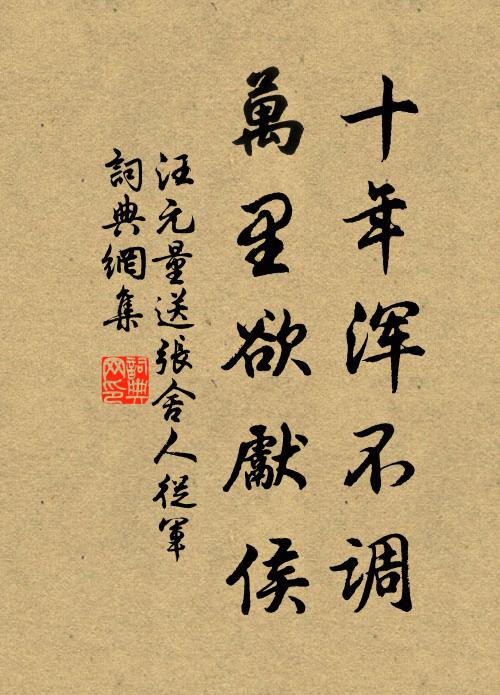 十年浑不调
萬里欲獻侯
汪元量送張舍人從軍
詞典網集
詞典網印